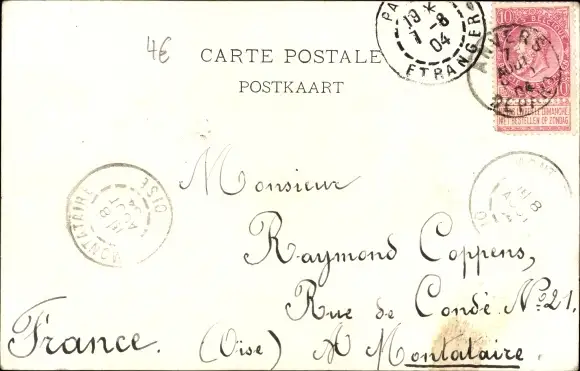 4€
CARTE POSTALE
POSTKAART
PA
19 *
7 -8
04
ETRANGER
10 10
ANVERS
7
AOUT
04
DEPART
NE PAS LIVRER LE DIMANCHE
NIET BESTELLEN OP ZONDAG
MONTATAIRE
OISE
8
AOUT
04
8
AOUT
Monsieur
Raymond Coppens,
Rue de Condé No 21.
France. (Oise) A Montataire.